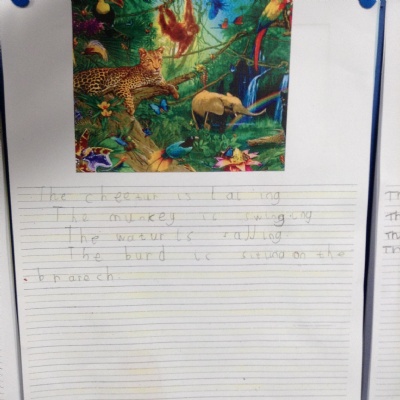 The cheetur is laing
The munkey is swinging
The watur is falling.
The burd is siting on the
branch.
Th
Th
Th